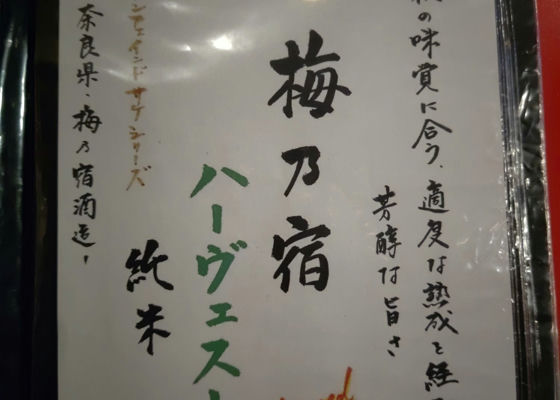 の味覚に合う、適度な熟成を経
芳醇な旨さ
梅乃宿
ハーヴェスト
純米
シーズ
奈良県・梅乃宿酒造・